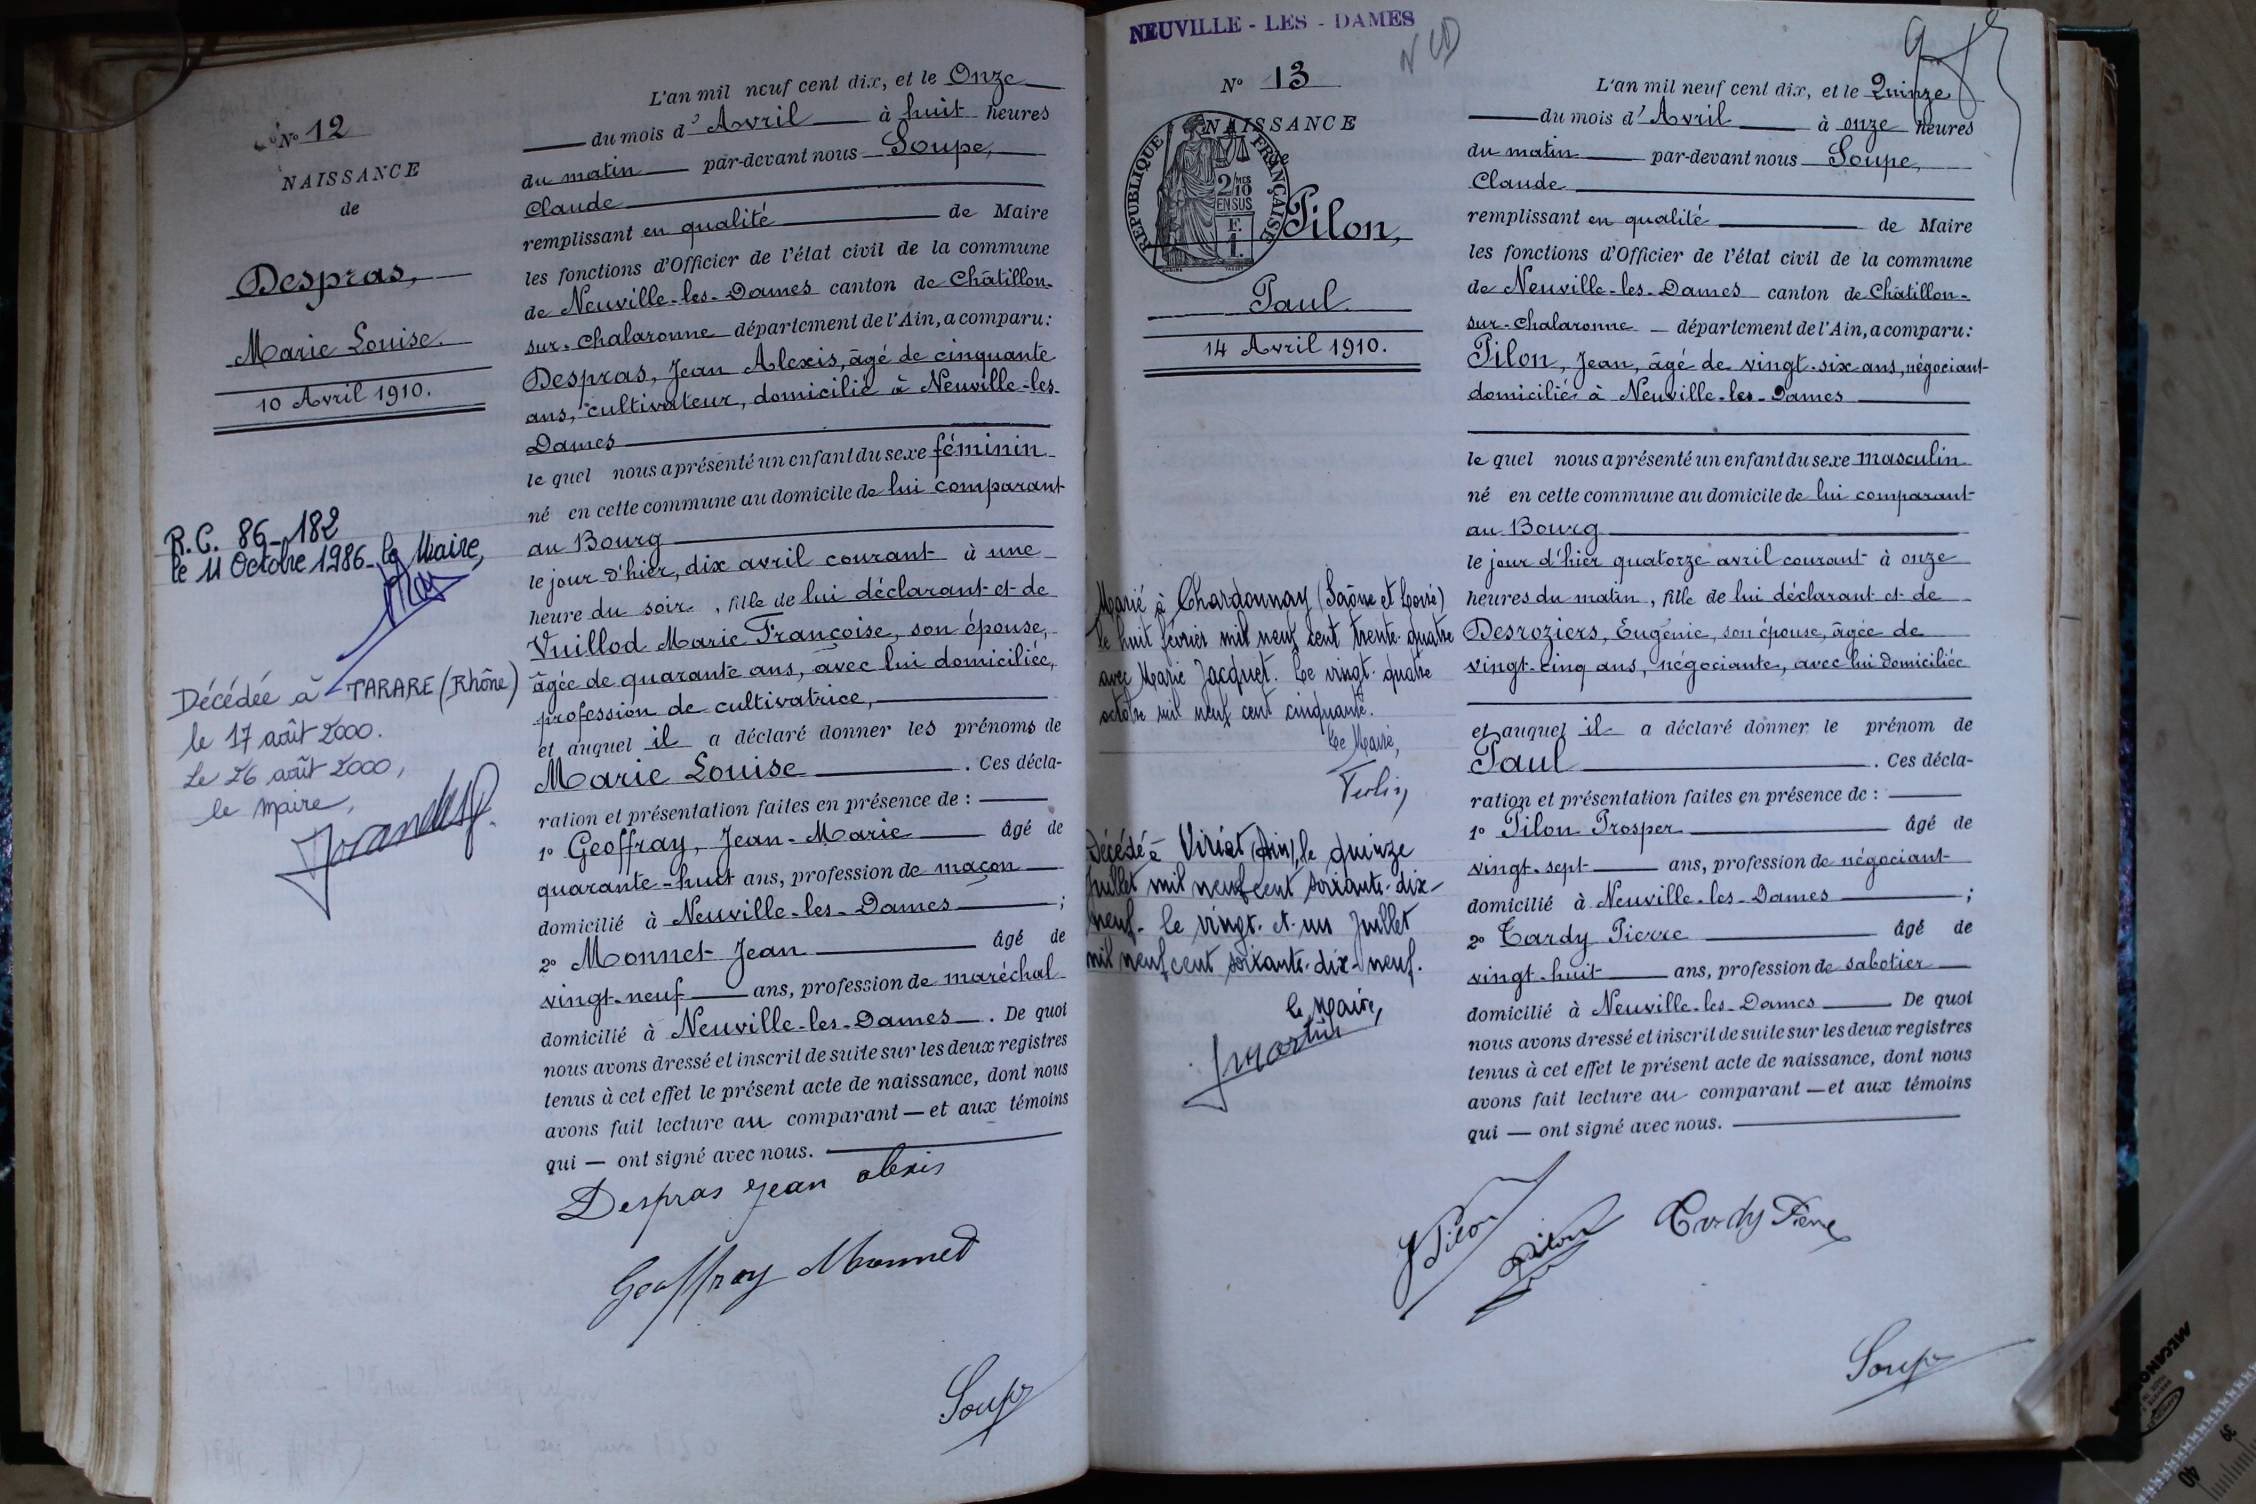 N° 12
NAISSANCE
de
Despras,
Marie Louise.
10 Avril 1910.
R.C. 86-182
le 11 Octobre 1986 - le Maire,
Décédée à TARARE (Rhône)
le 17 août 2000.
Le 26 août 2000,
le maire,
L'an mil neuf cent dix, et le Onze
du mois d'Avril à huit heures
du matin par-devant nous Soupe,
Claude
remplissant en qualité de Maire
les fonctions d'Officier de l'état civil de la commune
de Neuville-les-Dames canton de Châtillon-
sur-Chalaronne département de l'Ain, a comparu:
Despras, Jean Alexis, âgé de cinquante
ans, cultivateur, domicilié à Neuville-les-
Dames
le quel nous a présenté un enfant du sexe féminin
né en cette commune au domicile de lui comparant
au Bourg
le jour d'hier, dix avril courant à une
heure du soir, fille de lui déclarant et de
Vuillod Marie Françoise, son épouse,
âgée de quarante ans, avec lui domiciliée,
profession de cultivatrice,
et auquel il a déclaré donner les prénoms de
Marie Louise. Ces décla-
ration et présentation faites en présence de :
1° Geoffray, Jean-Marie âgé de
quarante-huit ans, profession de maçon
domicilié à Neuville-les-Dames ;
2° Monnet Jean âgé de
vingt-neuf ans, profession de maréchal
domicilié à Neuville-les-Dames. De quoi
nous avons dressé et inscrit de suite sur les deux registres
tenus à cet effet le présent acte de naissance, dont nous
avons fait lecture au comparant — et aux témoins
qui — ont signé avec nous.
Despras Jean alexis
Geoffray Monnet
Soupe
NEUVILLE - LES - DAMES
NLD
N° 13
NAISSANCE
de
RÉPUBLIQUE FRANÇAISE
2/10 MES
EN SUS
F.
1.
Pilon,
Paul.
14 Avril 1910.
Marié à Chardonnay (Saône et Loire)
le huit février mil neuf cent trente-quatre
avec Marie Jacquet. Le vingt-quatre
octobre mil neuf cent cinquante.
Le Maire,
Décédé à Viriat (Ain), le quinze
Juillet mil neuf cent soixante-dix-
neuf. le vingt-et-un Juillet
mil neuf cent soixante-dix-neuf.
le Maire,
L'an mil neuf cent dix, et le Quinze
du mois d'Avril à onze heures
du matin par-devant nous Soupe,
Claude
remplissant en qualité de Maire
les fonctions d'Officier de l'état civil de la commune
de Neuville-les-Dames canton de Châtillon-
sur-Chalaronne département de l'Ain, a comparu:
Pilon, Jean, âgé de vingt-six ans, négociant
domicilié à Neuville-les-Dames
le quel nous a présenté un enfant du sexe masculin
né en cette commune au domicile de lui comparant
au Bourg
le jour d'hier quatorze avril courant à onze
heures du matin, fille de lui déclarant et de
Desroziers, Eugénie, son épouse, âgée de
vingt-cinq ans, négociante, avec lui domiciliée
et auquel il a déclaré donner le prénom de
Paul. Ces décla-
ration et présentation faites en présence de :
1° Pilon Prosper âgé de
vingt-sept ans, profession de négociant
domicilié à Neuville-les-Dames ;
2° Tardy Pierre âgé de
vingt-huit ans, profession de sabotier
domicilié à Neuville-les-Dames De quoi
nous avons dressé et inscrit de suite sur les deux registres
tenus à cet effet le présent acte de naissance, dont nous
avons fait lecture au comparant — et aux témoins
qui — ont signé avec nous.
J Pilon Pilon Tardy Pierre
Soupe
39
40